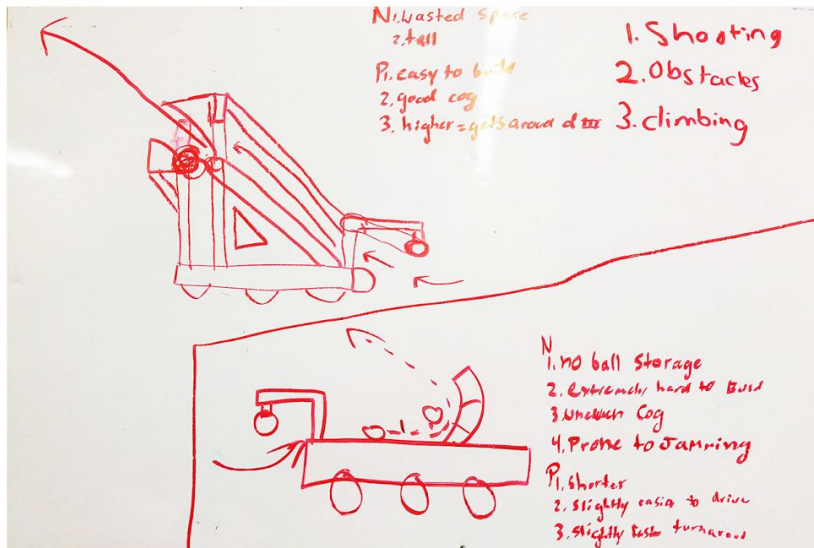 N 1. wasted space
2. tall
P1. easy to build
2. good cog
3. higher = gets aroud d III
1. Shooting
2. Obstacles
3. climbing
N
1. no ball storage
2. extremely hard to Buid
3. Cog
4. Prone to Jamming
P1. shorter
2. slightly easier to drive
3. slightly faster turnaroud